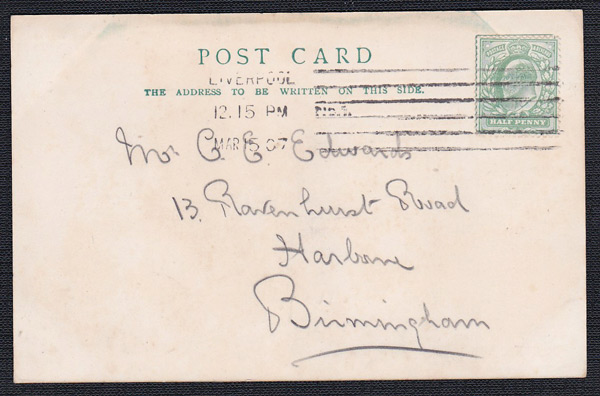 POST CARD
LIVERPOOL
THE ADDRESS TO BE WRITTEN ON THIS SIDE.
12.15 PM
MAR 15 07
HALF PENNY
Mr C. E. Edwards
13. Ravenhurst Road
Harborne
Birmingham